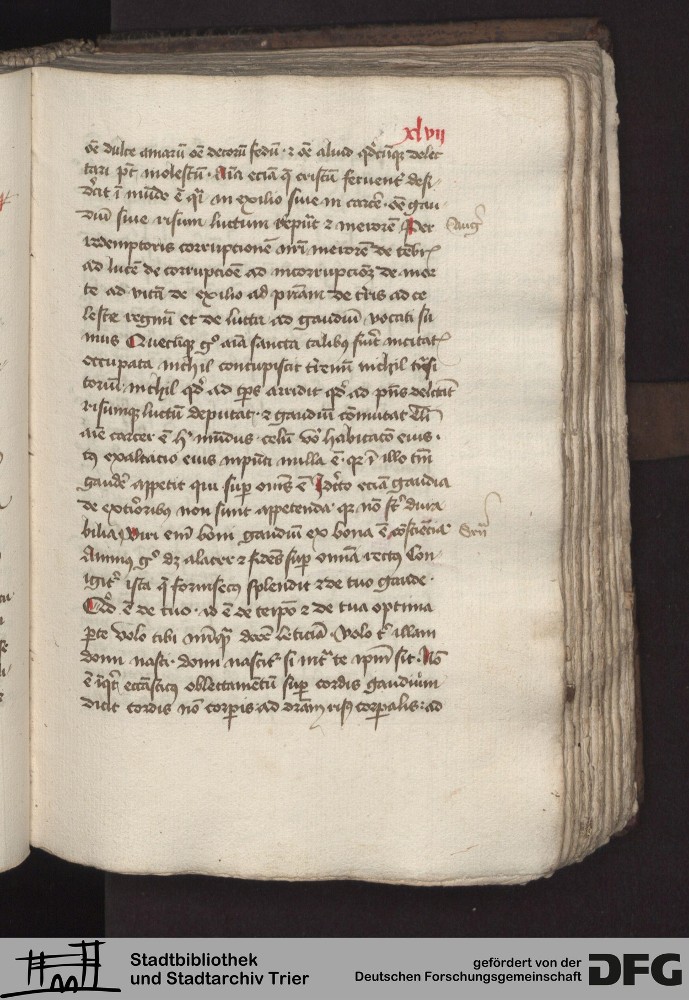 xlvii
oē dulce amarū oē decorū fedū · ⁊ oē aliud qd'cūqꝫ delec
tari pōt molestū · Aīa eciā q̄ cristū feruent' desi
d'at ī mūdo ē q̄i in exilio siue in carc̄e · oē gau
diū siue risum luctum reputat ⁊ merorē Per
redemptoris corrupcionē nr̄i merorē de teb'
ad lucē de corrupcioē ad incorrupcioꝫ de mor
te ad vitā de exilio ad pr̄iam de t'ris ad ce
leste regnū et de luctu ad gaudiū vocati su
mus Quecūqꝫ g° aīa sancta talibꝫ fu'it incitat'
occupata nichil concupiscit t'renū nichil trāsi
toriū · nichil qd' ad tp̄s arridit qd' ad p̄ns delectat
risumqꝫ luctū deputat · ⁊ gaudiū cōmutat
aīe carcer ē h' mūdus · celū vo' habitacō eius ·
exaltacio eius nulla ē · qr ī illo tm̄
gaudē appetit qui sup om̄s ē Idc'co eciā gaudia
de ext'ioribꝫ non sunt appetenda qr nō st' dura
bilia Viri em̄ boni gaudiū ex bona ē cōsciēcia
Animus g° dꝫ alacer ⁊ fidēs sup omīa rectꝫ Con
ista q̄ forinsecꝫ splendēt ⁊ de tuo gaude ·
Qd' ē de tuo · id ē de teipō ⁊ de tua optima
ꝑte Volo tibi nūq̄ deesse leticiā · Volo t' illam
domi nasci · domi nascit' si int' te ip̄m sit · Nō
ē eccl̄iasticꝫ oblectamētū sup cordis gaudium
dicit cordis nō corꝑis ad drām risꝫ corꝑalis · ad
Aug'
Stadtbibliothek
und Stadtarchiv Trier
gefördert von der
Deutschen Forschungsgemeinschaft
DFG